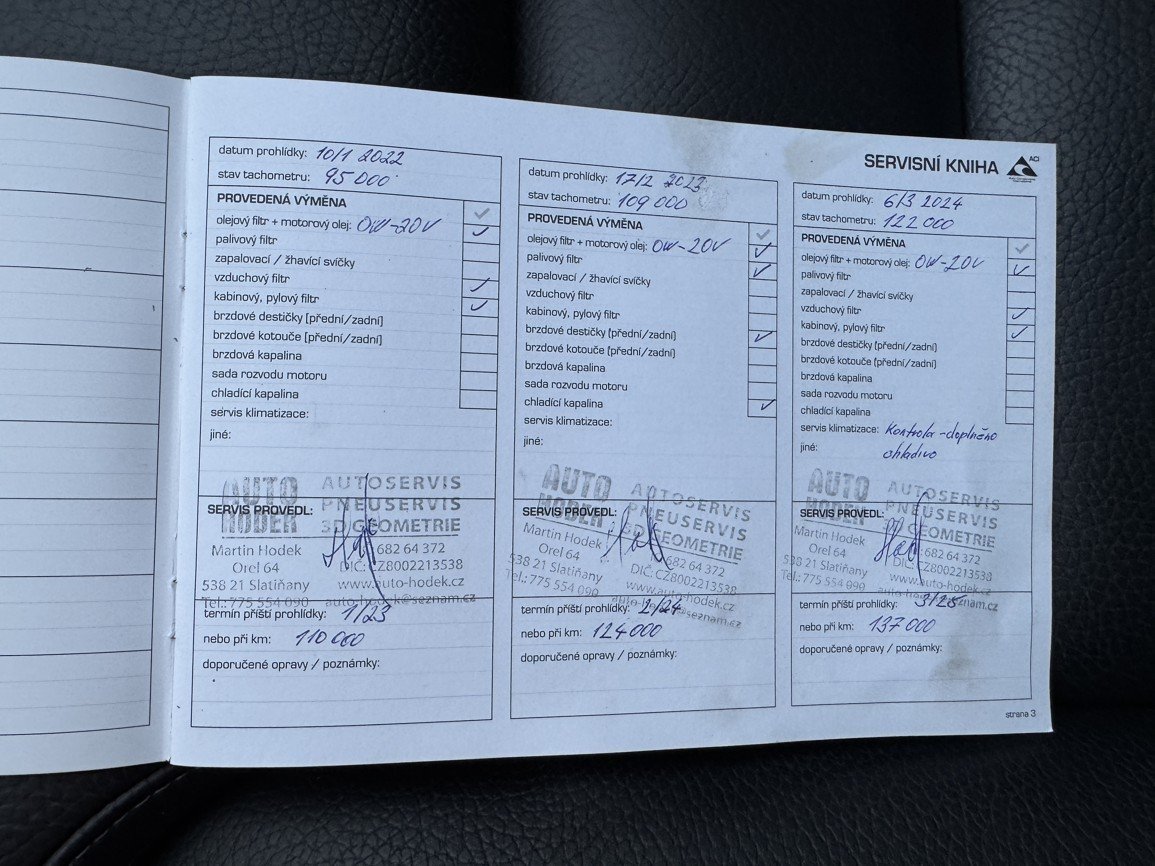 SERVISNÍ KNIHA
ACI
datum prohlídky: 10/1 2022
stav tachometru: 95 000
PROVEDENÁ VÝMĚNA
olejový filtr + motorový olej: 0W-20V
palivový filtr
zapalovací / žhavící svíčky
vzduchový filtr
kabinový, pylový filtr
brzdové destičky [přední/zadní]
brzdové kotouče [přední/zadní]
brzdová kapalina
sada rozvodu motoru
chladící kapalina
servis klimatizace:
jiné:
AUTO HODEK
AUTOSERVIS
PNEUSERVIS
3D GEOMETRIE
SERVIS PROVEDL:
Martin Hodek
Orel 64
538 21 Slatiňany
Tel.: 775 554 090
682 64 372
DIČ: CZ8002213538
www.auto-hodek.cz
auto-hodek@seznam.cz
termín příští prohlídky: 1/23
nebo při km: 110 000
doporučené opravy / poznámky:
datum prohlídky: 17/2 2023
stav tachometru: 109 000
PROVEDENÁ VÝMĚNA
olejový filtr + motorový olej: 0W-20V
palivový filtr
zapalovací / žhavící svíčky
vzduchový filtr
kabinový, pylový filtr
brzdové destičky (přední/zadní)
brzdové kotouče (přední/zadní)
brzdová kapalina
sada rozvodu motoru
chladící kapalina
servis klimatizace:
jiné:
AUTO HODEK
AUTOSERVIS
PNEUSERVIS
3D GEOMETRIE
SERVIS PROVEDL:
Martin Hodek
Orel 64
538 21 Slatiňany
Tel.: 775 554 090
682 64 372
DIČ: CZ8002213538
www.auto-hodek.cz
auto-hodek@seznam.cz
termín příští prohlídky: 2/24
nebo při km: 124 000
doporučené opravy / poznámky:
datum prohlídky: 6/3 2024
stav tachometru: 122 000
PROVEDENÁ VÝMĚNA
olejový filtr + motorový olej: 0W-20V
palivový filtr
zapalovací / žhavící svíčky
vzduchový filtr
kabinový, pylový filtr
brzdové destičky (přední/zadní)
brzdové kotouče (přední/zadní)
brzdová kapalina
sada rozvodu motoru
chladící kapalina
servis klimatizace: kontrola-doplněno
jiné: chladivo
AUTO HODEK
AUTOSERVIS
PNEUSERVIS
3D GEOMETRIE
SERVIS PROVEDL:
Martin Hodek
Orel 64
538 21 Slatiňany
Tel.: 775 554 090
682 64 372
DIČ: CZ8002213538
www.auto-hodek.cz
auto-hodek@seznam.cz
termín příští prohlídky: 3/25
nebo při km: 137 000
doporučené opravy / poznámky:
strana 3